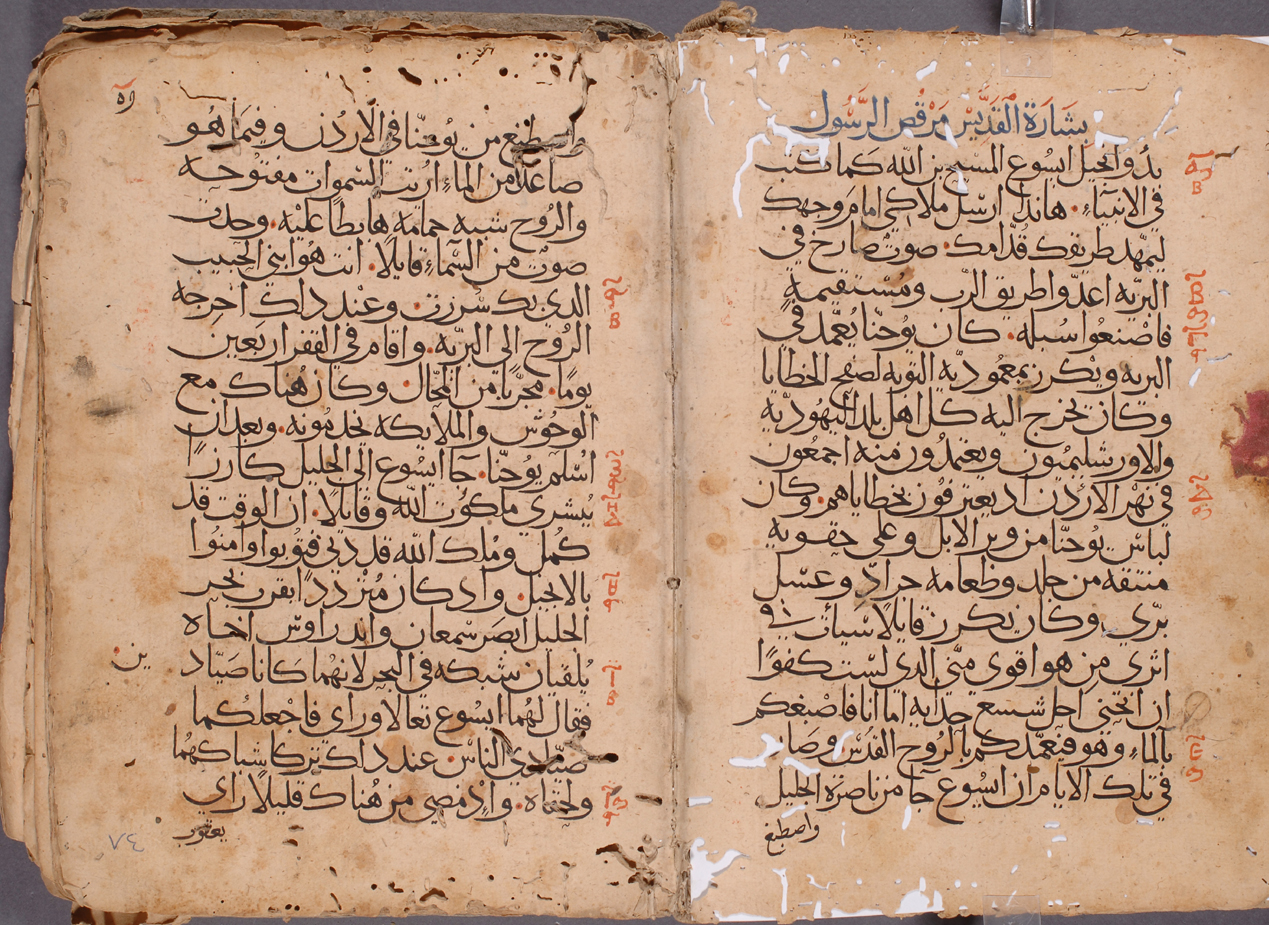 بشارة القديس مرقص الرسول
بدو انجيل ايسوع المسيح بن الله كما كتب
في الانبياء. هاندا ارسل ملاكي امام وجهك
ليمهد طريقك قدامك. صوت صارخ في
البريه اعدوا طريق الرب ومستقيمة
فاصنعوا سبله. كان يوحنا يعمد في
البريه ويكرز بمعموديه التوبه لصفح الخطايا
وكان يخرج اليه كل اهل بلد اليهوديه
والاورشليميون ويعتمدون منه اجمعون
في نهر الاردن اد يعترفون بخطاياهم. وكان
لباس يوحنا من وبر الابل وعلى حقويه
منتقه من جلد وطعامه جراد وعسل
بري. وكان يكرز قايلا سيات في
اثري من هو اقوى مني الدي لست كفوًا
ان انحني احل شسع حدايه اما انا فاصبغكم
بالماء وهو فيعمدكم بالروح القدس وصار
في تلك الايام ان ايسوع جا من ناصرة الجليل
واصطبغ
واصطبغ من يوحنا في الاردن وفيما هو
صاعدًا من الماء اريت السموات مفتوحة
والروح شبه حمامه هابطًا عليه. وحدث
صوت من السماء قايلًا. انت هو ابني الحبيب
الدي بك سررت. وعند داك اخرجه
الروح الى البريه. واقام في القفر اربعين
يومًا. مجربًا من المحال. وكان هناك مع
الوحوش والملايكه يخدمونه. وبعد ان
اسلم يوحنا. جا ايسوع الى الجليل كارزًا
ببشرى ملكوت الله وقايلًا. ان الوقت قد
كمل وملك الله قد دنى فتوبوا وامنوا
بالانجيل. واد كان مترددًا بقرب بحر
الجليل ابصر سمعان واندراوس اخاه
يلقيان شبكه في البحر لانهما كانا صياد
ين
فقال لهما ايسوع تعالا وراي فاجعلكما
صيادي الناس عند داك تركا شباكهما
ولحقاه. واد مضى من هناك قليلًا راى
يعقوب
٧٤